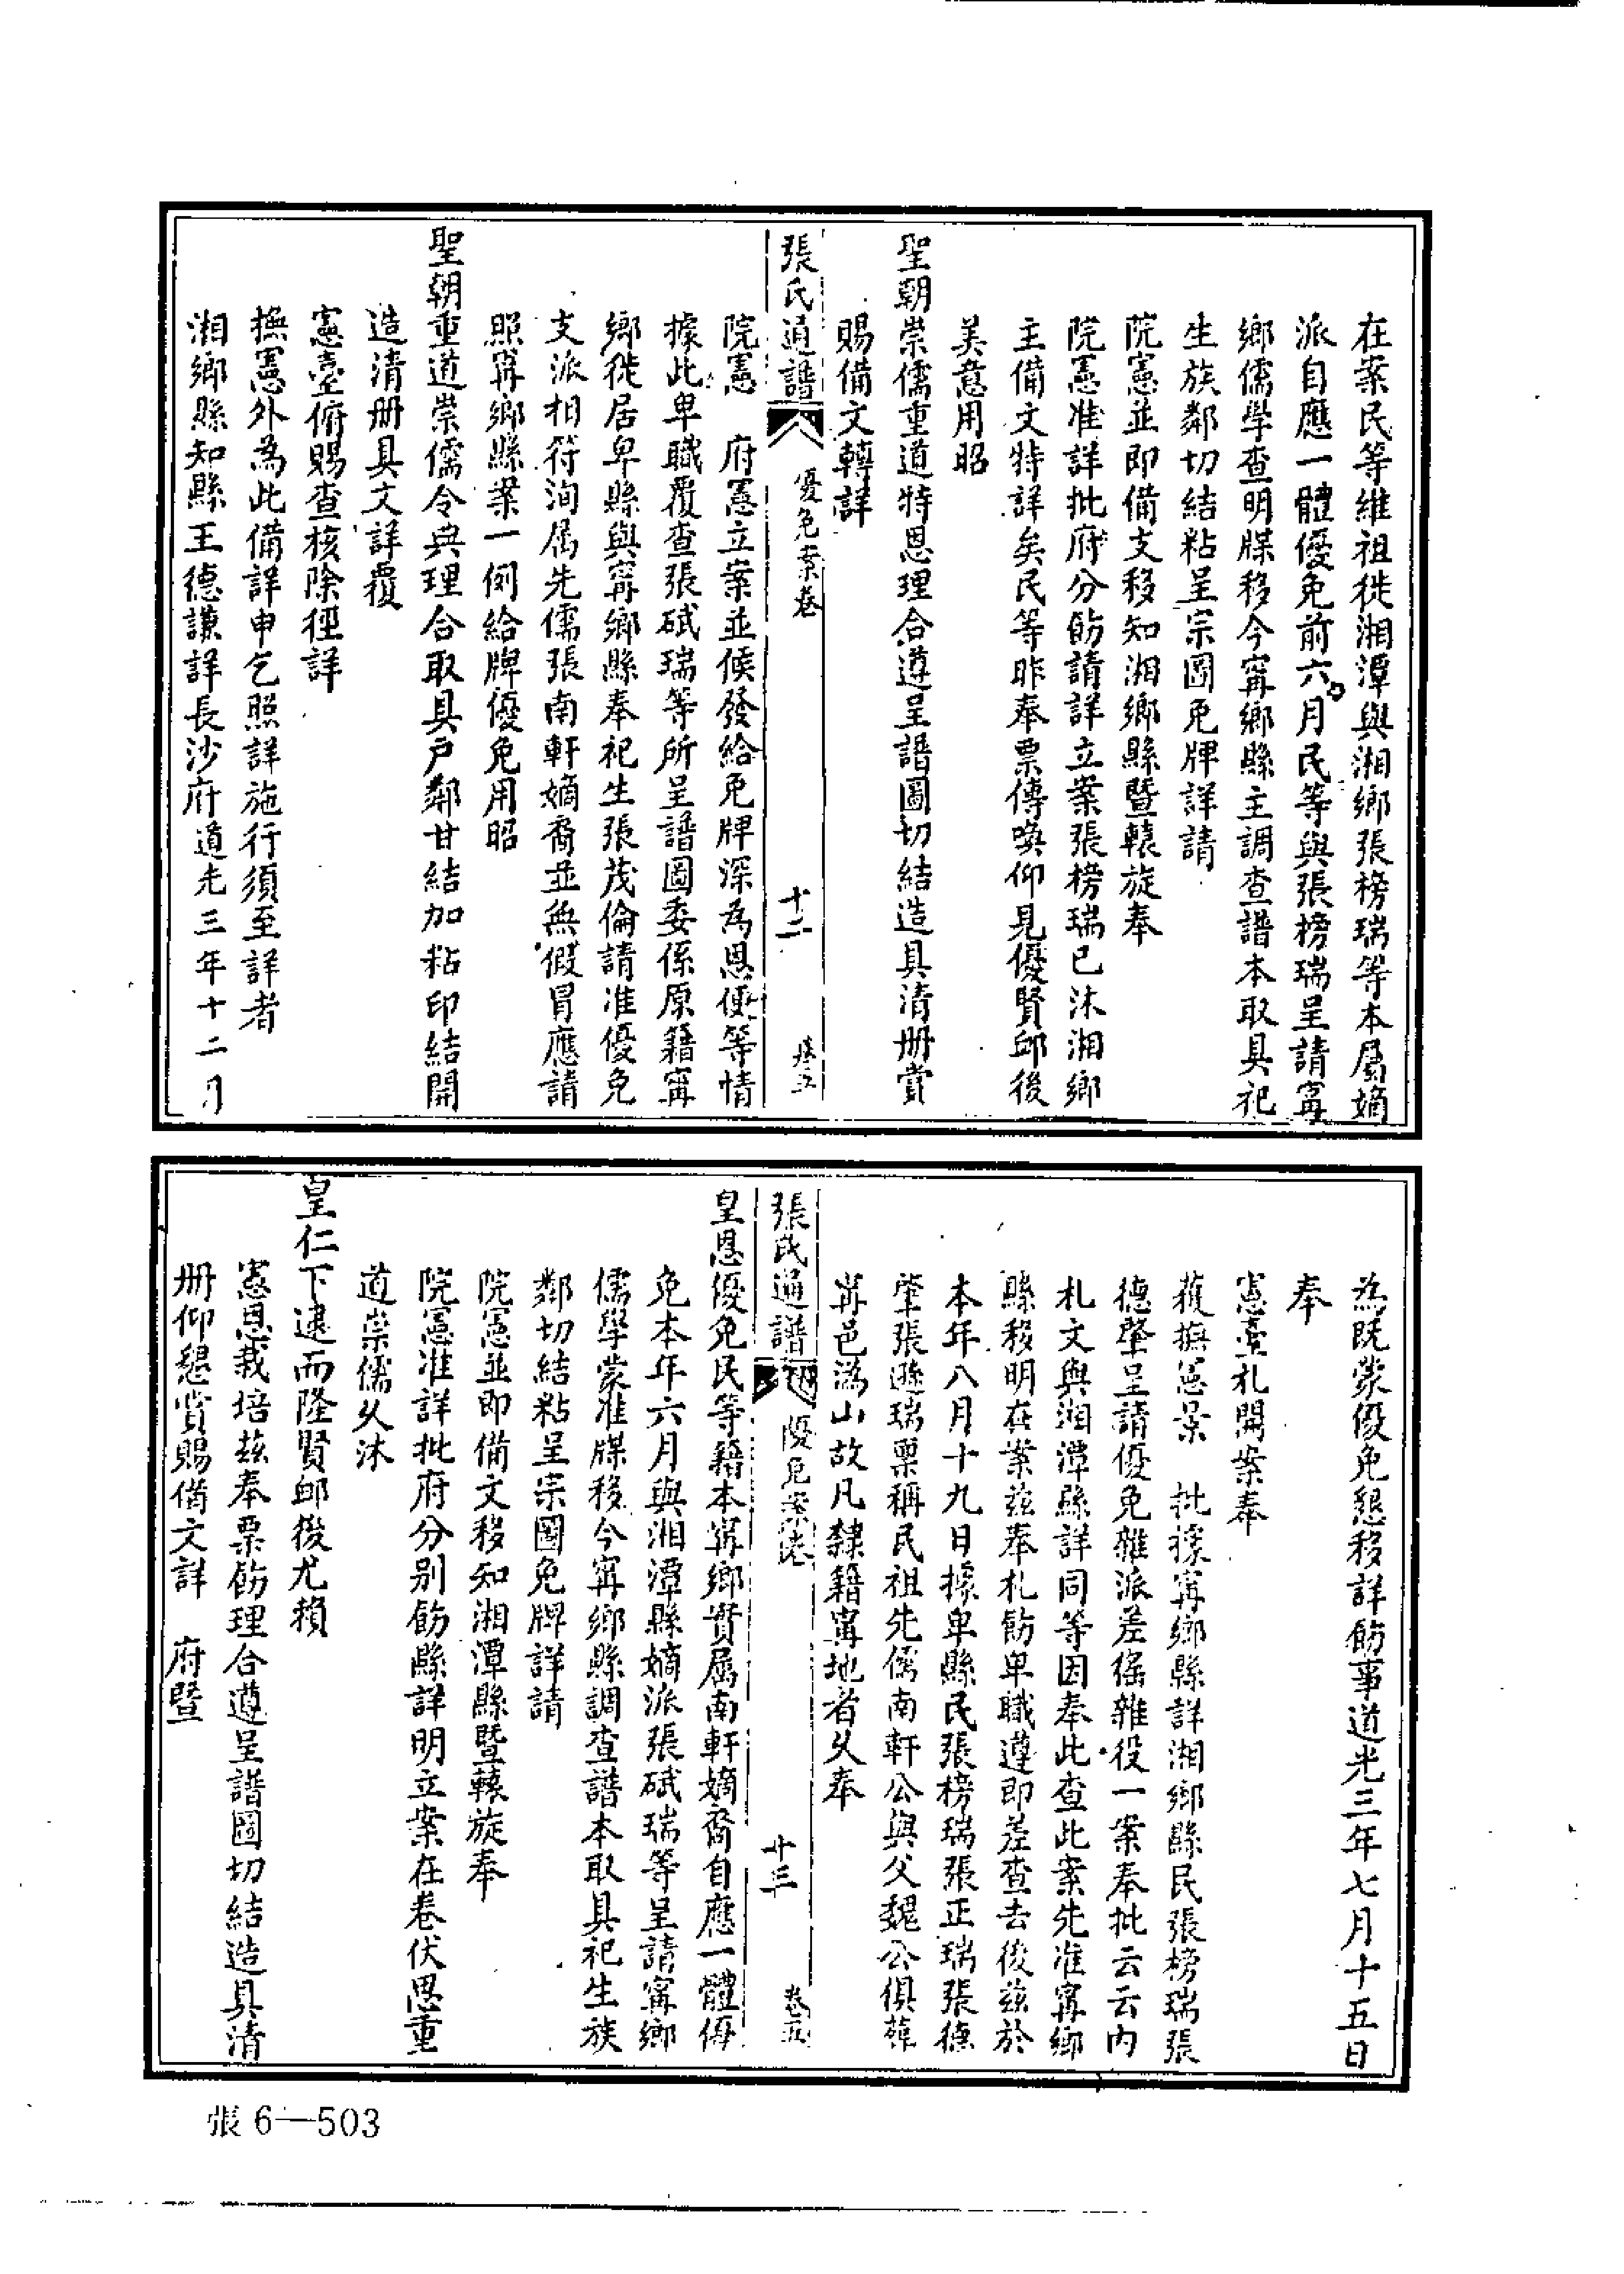 在案民等維祖徙湘潭與湘鄉張榜瑞等本屬嫡
派自應一體優免前六月民等與張榜瑞呈請甯
鄉儒學查明牒移今甯鄉縣主調查譜本取具祀
生族鄰切結粘呈宗圖免牌詳請
院憲並即備支移知湘鄉縣暨轅旋奉
院憲准詳批府分飭請詳立案張榜瑞已沐湘鄉
主備文特詳矣民等昨奉票傳喚仰見優賢卹後
美意用昭
聖朝崇儒重道特恩理合遵呈譜圖切結造具清册賞
賜備文轉詳
張氏通譜 優免案卷 十二 卷五
院憲 府憲立案並候發給免牌深為恩便等情
據此卑職覆查張珷瑞等所呈譜圖委係原籍甯
鄉徙居卑縣與甯鄉縣奉祀生張茂倫請准優免
支派相符洵屬先儒張南軒嫡裔並無假冒應請
照甯鄉縣案一例給牌優免用昭
聖朝重道崇儒令典理合取具户鄰甘結加粘印結開
造清册具文詳覆
憲臺俯賜查核除徑詳
撫憲外為此備詳申乞照詳施行須至詳者
湘鄉縣知縣王德謙詳長沙府道光三年十二月
為既蒙優免懇移詳飭事道光三年七月十五日
奉
憲臺札開案奉
蒞撫憲景 批據甯鄉縣詳湘鄉縣民張榜瑞張
德肇呈請優免雜派差徭雜役一案奉批云云内
札文與湘潭縣詳同等因奉此查此案先准甯鄉
縣移明在案兹奉札飭卑職遵即差查去後兹於
本年八月十九日據卑縣民張榜瑞張正瑞張德
肇張遜瑞稟稱民祖先儒南軒公與父魏公俱葬
甯邑溈山故凡隸籍甯地者乆奉
張氏通譜 優免案卷 十三 卷五
皇恩優免民等籍本甯鄉實屬南軒嫡裔自應一體優
免本年六月與湘潭縣嫡派張珷瑞等呈請甯鄉
儒學蒙准牒移今甯鄉縣調查譜本取具祀生族
鄰切結粘呈宗圖免牌詳請
院憲並即備文移知湘潭縣暨轅旋奉
院憲准詳批府分别飭縣詳明立案在卷伏思重
道崇儒乆沐
皇仁下逮而隆賢卹後尤賴
憲恩栽培兹奉票飭理合遵呈譜圖切結造具清
册仰懇賞賜備文詳 府暨
張6—503